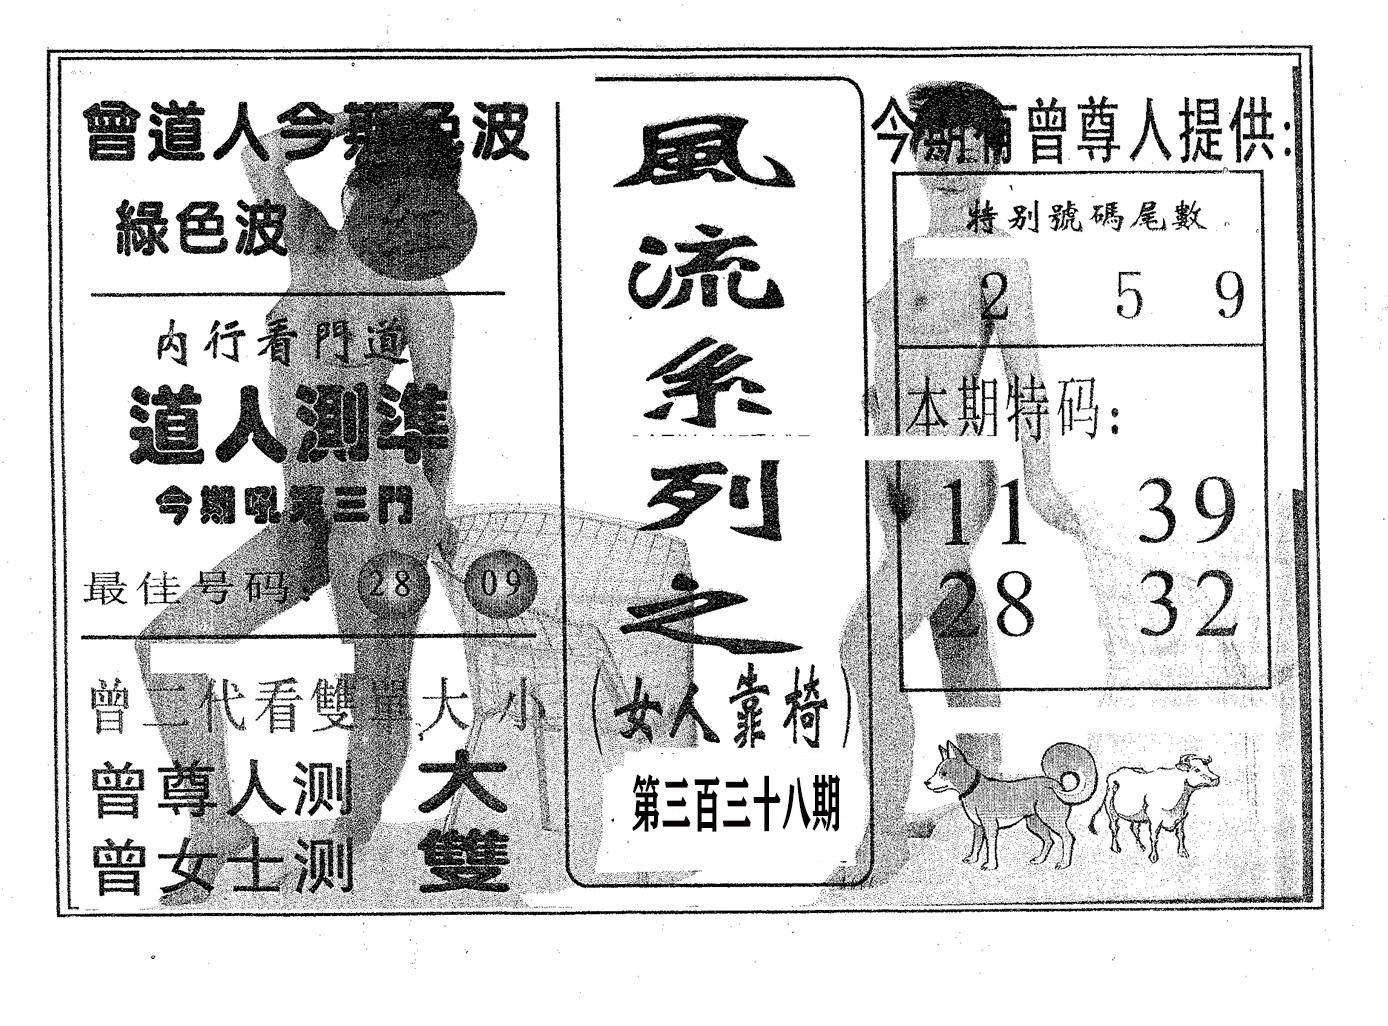 曾道人今期色波
綠色波 紅
内行看門道
道人測準
今期吼第三門
最佳号码: 28 09
曾二代看雙單大小
曾尊人测 大
曾女士测 雙
風流系列之
(女人靠椅)
第三百三十八期
今期有曾尊人提供:
特别號碼尾數
2 5 9
本期特码:
11 39
28 32